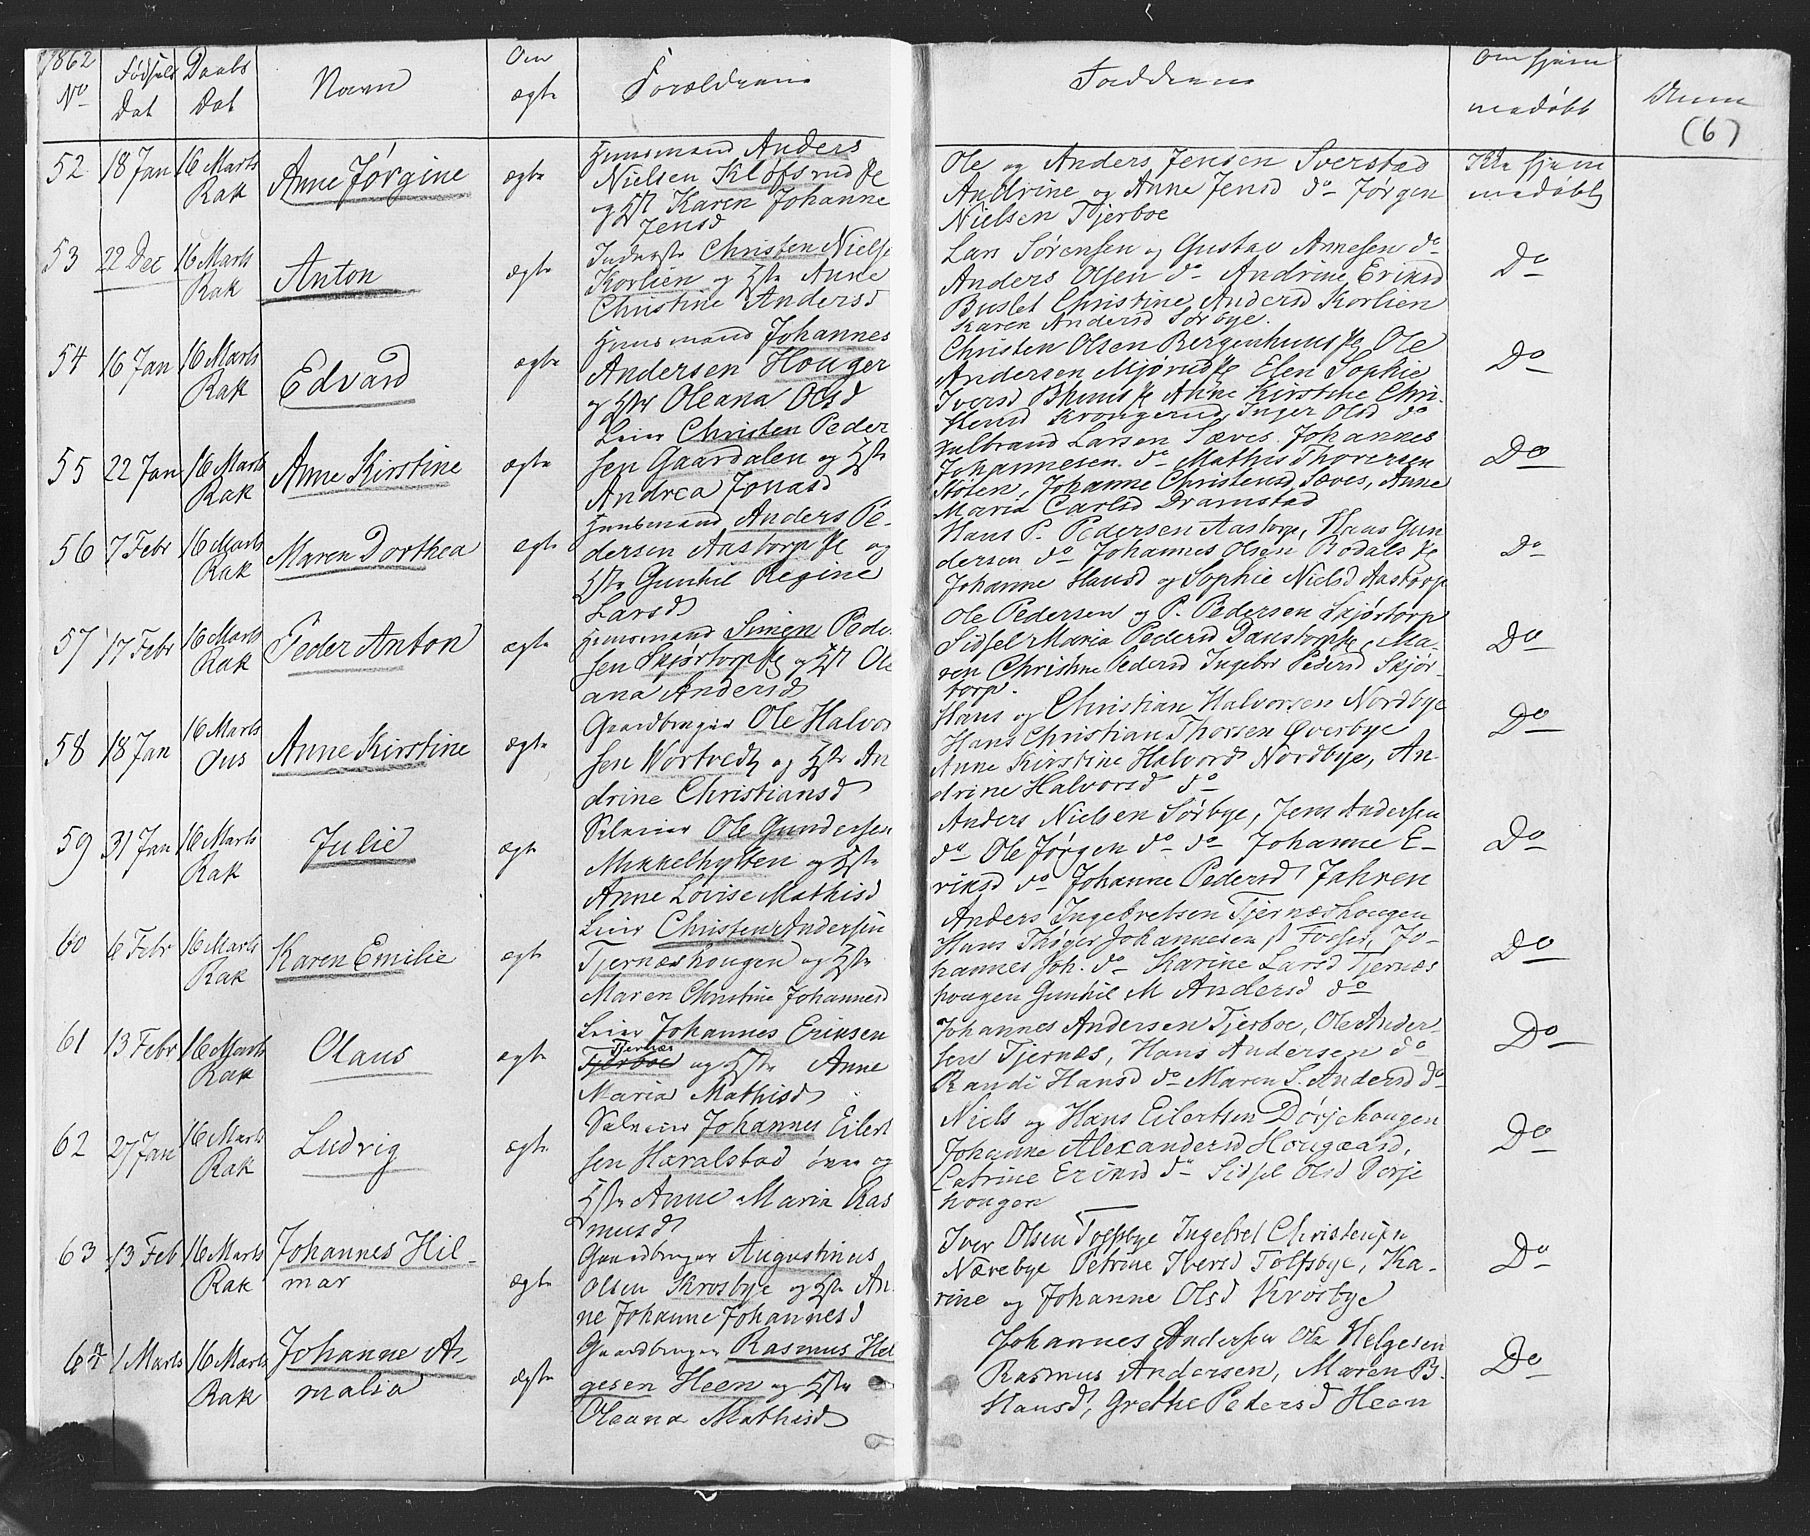 1862
No
Fødsels
Dat
Daabs
Dat
Navn
Om
ægte
Forældrene
Fadderne
Om hjem
medøbt
Anm
(6)
52 18 Jan 16 Marts
Rak
Anne Jørgine
ægte
Huusmand Anders
Nielsen Kløfsrud
og Hst Karen Johanne
Jensd
Ole og Anders Jensen Sverstad
Andrine og Anne Jensd do Jørgen
Nielsen Tjerboe
hjem
medøbt
53 22 Dec 16 Marts
Rak
Anton
ægte
Inderste Christen Niels
Korlien og Hst Anne
Christine Andersd
Lars Sørensen og Gustav Arnesen do
Anders Olsen do Andrine Eriksd
Buslet Christine Andersd Korlien
Karen Andersd Sørbye.
Do
54 16 Jan 16 Marts
Rak
Edvard
ægte
Huusmand Johannes
Andersen Houger
og Hst Oleana Olsd
Christen Olsen Bergenhuus Ole
Andersen Mjørud Elen Sophie
Iversd Anne Kirstine Chri-
stensd Krongerud Inger Olsd do
Do
55 22 Jan 16 Marts
Rak
Anne Kirstine
ægte
Leier Christen Peder
sen Gaardalen og Hst
Andrea Jonasd
Gulbrand Larsen Sæves. Johannes
Johannesen. do Mathis Thoresen
Støten, Johanne Christensd Sæves, Anne
Maria Carlsd Dramstad
Do
56 7 Febr 16 Marts
Rak
Maren Dorthea
ægte
Huusmand Anders Pe-
dersen Aastorp og
Hst Gunhil Regine
Larsd
Hans P. Pedersen Aastorp, Hans Gun
dersen do Johannes Olsen Bodals
Johanne Hansd og Sophie Nielsd Aastorp
Do
57 17 Febr 16 Marts
Rak
Peder Anton
ægte
Huusmand Simen Peder
sen Skjørtorp og Hst Ole
ana Andersd
Ole Pedersen og P. Pedersen Skjørtorp
Sidsel Maria Pedersd Danstorp, Ma-
ren Christine Pedersd Ingebor Pedersd Skjør
torp.
Do
58 18 Jan 16 Marts
Ous
Anne Kirstine
ægte
Gaardbruger Ole Halvor
sen Wortvedt og Hst An
drine Christiansd
Hans og Christian Halvorsen Nordbye
Hans Christian Thorsen Øverbye
Anne Kirstine Halvorsd Nordbye, An-
drine Halvorsd do
Do
59 31 Jan 16 Marts
Rak
Julie
ægte
Selveier Ole Gundersen
Mikkelhytten og Hst
Anne Lovise Mathisd
Anders Nielsen Sørbye, Jens Andersen
do Ole Jørgen do do Johanne E-
riksd do Johanne Pedersd Jahren
Do
60 6 Febr 16 Marts
Rak
Karen Emilie
ægte
Leier Christen Andersen
Tjernæshougen og Hst
Maren Christine Johannesd
Anders Ingebretsen Tjernæshougen
Hans Thøger Johannesen Fosser, Jo-
hannes Joh. do Karine Larsd Tjernæs
hougen Gunhil M Andersd do
Do
61 13 Febr 16 Marts
Rak
Olaus
ægte
Leier Johannes Eriksen
Tjernæs
Tjerboe og Hst Anne
Maria Mathisd
Johannes Andersen Tjerboe, Ole Ander-
sen Tjernæs, Hans Andersen do
Randi Hansd do Maren S. Andersd do
Do
62 27 Jan 16 Marts
Rak
Ludvig
ægte
Selveier Johannes Eilert
sen Haralstad øvre og
Hst Anne Maria Ras
musd
Niels og Hans Eilertsen Dørjehougen
Johanne Alexandersd Hougaard,
Catrine Eriksd do Sidsel Olsd Dørje
hougen
Do
63 13 Feb 16 Marts
Rak
Johannes Hil-
mar
ægte
Gaardbruger Augustinus
Olsen Krosbye og Hst An-
ne Johanne Johannesd
Iver Olsen Tolfsbye Ingebret Christensen
Nærebye Petrine Iversd Tolfsbye, Ka-
rine og Johanne Olsd Krosbye
Do
64 1 Marts 16 Marts
Rak
Johanne A-
malia
ægte
Gaardbruger Rasmus Hel
gesen Heen og Hst
Oleana Mathisd
Johannes Andersen Ole Helgesen
Rasmus Andersen, Maren B.
Hansd, Grethe Pedersd Heen
Do